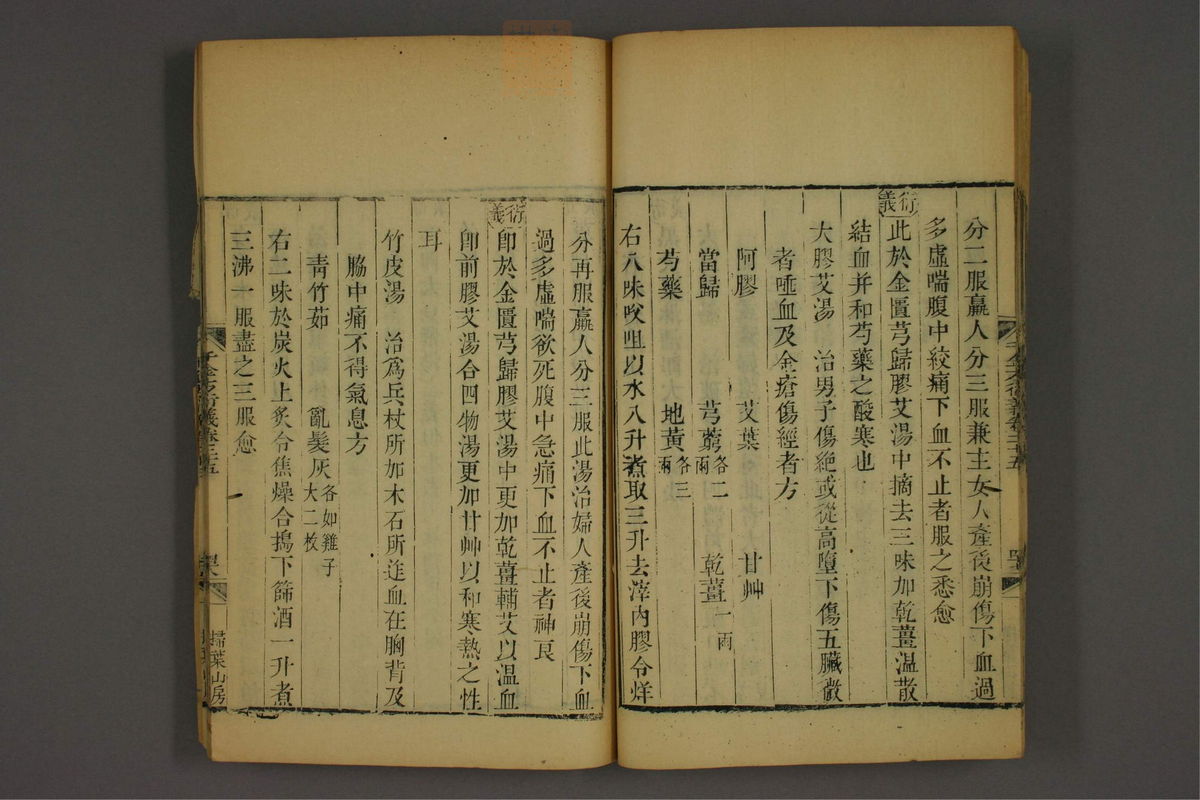 分二服羸人分三服兼主女人產後崩傷下血過
多虛喘腹中絞痛下血不止者服之悉愈
衍義
此於金匱芎歸膠艾湯中摘去三味加乾薑温散
結血并和芍藥之酸寒也
大膠艾湯 治男子傷絶或從高墮下傷五臟微
者唾血及金瘡傷經者方
阿膠 艾葉 甘艸
當歸 芎藭各二兩 乾薑一兩
芍藥 地黃各三兩
右八味㕮咀以水八升煮取三升去滓内膠令烊
千金方衍義卷二十五
分再服羸人分三服此湯治婦人產後崩傷下血
過多虛喘欲死腹中急痛下血不止者神良
衍義
卽於金匱芎歸膠艾湯中更加乾薑輔艾以温血
卽前膠艾湯合四物湯更加甘艸以和寒熱之性
耳
竹皮湯 治爲兵杖所加木石所迮血在胸背及
脇中痛不得氣息方
靑竹茹 亂髮灰各如雞子大二枚
右二味於炭火上炙令焦燥合搗下篩酒一升煮
三沸一服盡之三服愈
千金方衍義卷二十五
掃葉山房